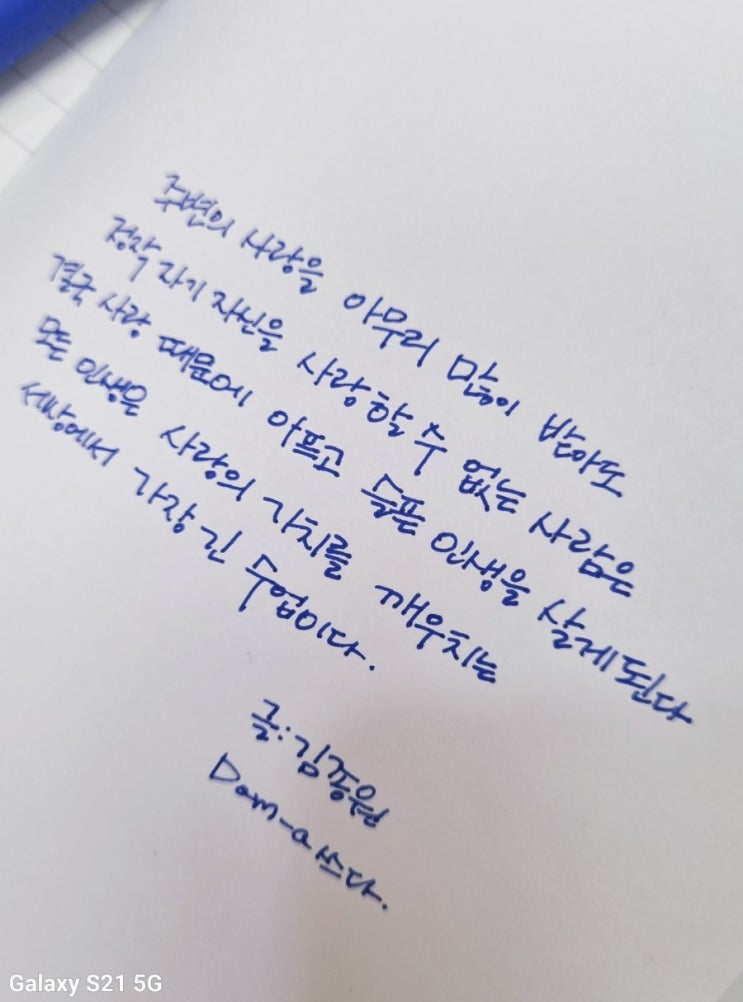 주변의 사랑을 아무리 많이 받아도
정작 자기 자신을 사랑할 수 없는 사람은
결국 사랑 때문에 아프고 슬픈 인생을 살게 된다
모든 인생은 사랑의 가치를 깨우치는
세상에서 가장 긴 수업이다.
글:김종원
Dam-a 쓰다.
Galaxy S21 5G